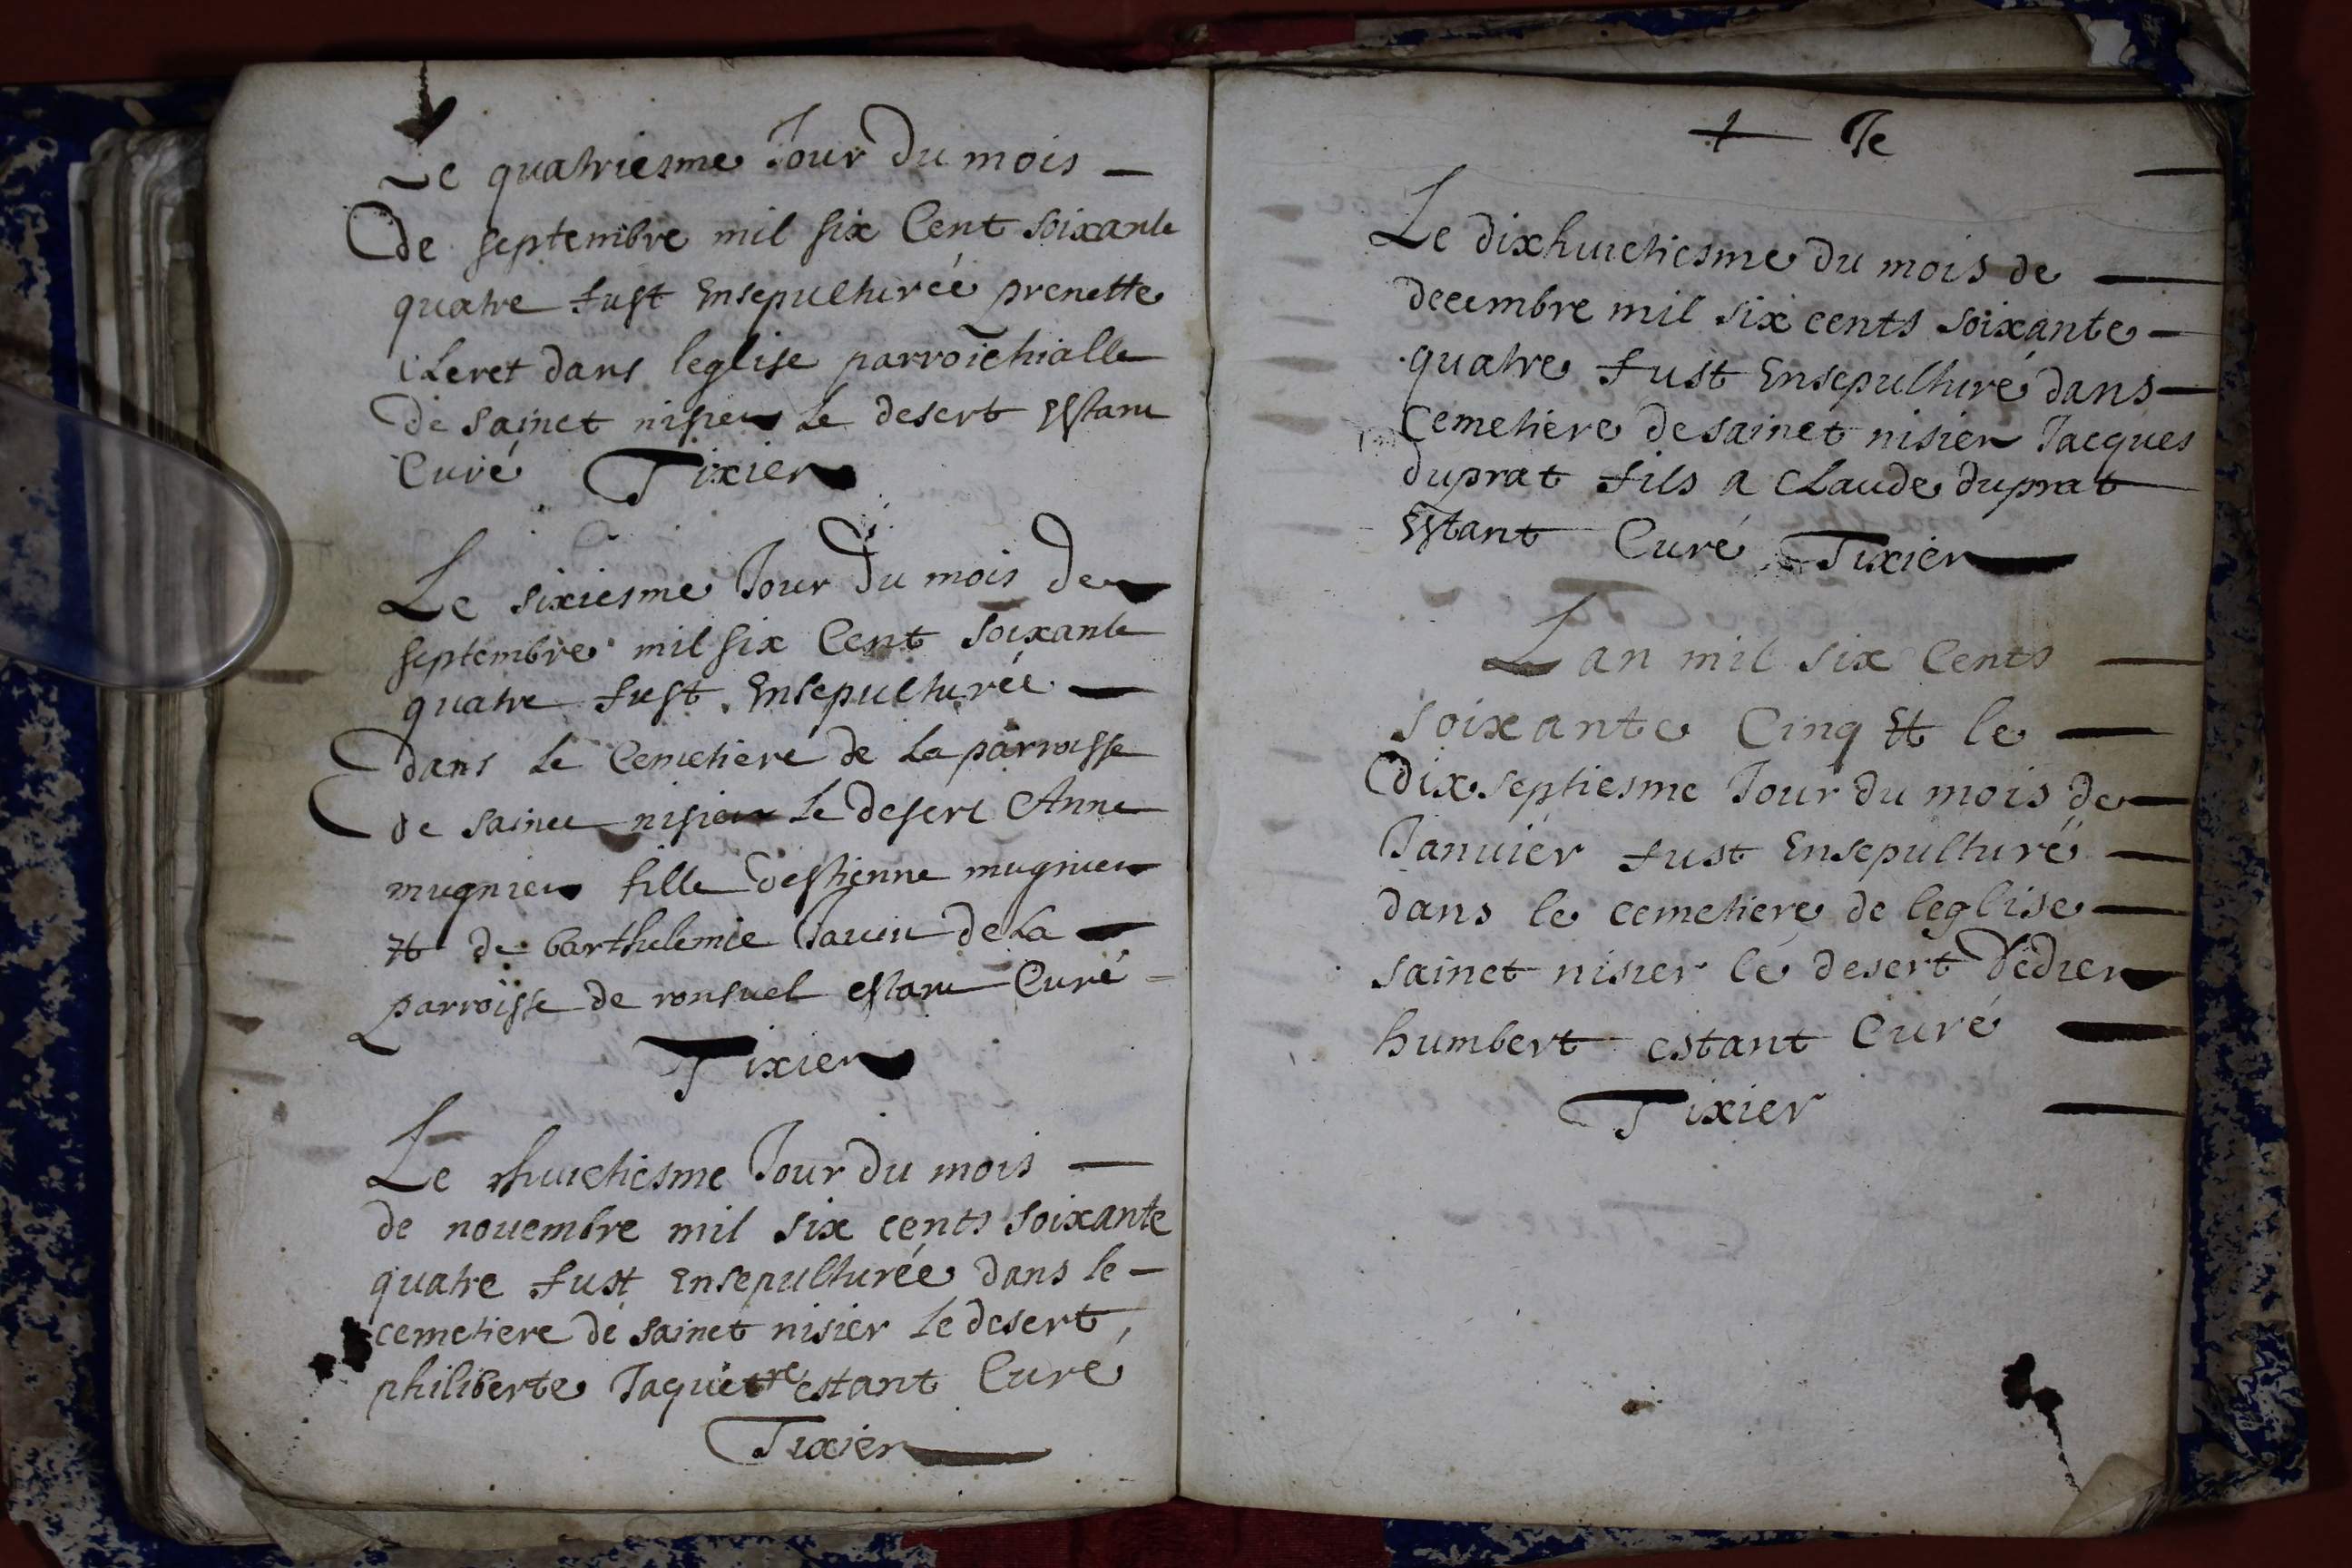 Le quatriesme Jour du mois
de septembre mil six Cent soixante
quatre fust Ensepulturée prenette
Leret dans leglise parroichialle
de sainct nisier le desert Estant
Curé Tixier
Le sixiesme Jour du mois de
septembre mil six Cent soixante
quatre fust Ensepulturée
dans le Cemetiere de la parroisse
de sainct nisier le desert Anne
mugnier fille destienne mugnier
Et de barthelemie de la
parroisse de ronsuel estant Curé
Tixier
Le huictiesme Jour du mois
de nouembre mil six cents soixante
quatre fust Ensepulturée dans le
cemetiere de sainct nisier le desert
philiberte Jaquetre estant Curé
Tixier
Je
Le dixhuictiesme du mois de
decembre mil six cents soixante
quatre fust Ensepulturé dans
Cemetiere de sainct nisier Jacques
duprat fils a Claude duprat
Estant Curé Tixier
Lan mil six Cents
soixante Cinq Et le
dixseptiesme Jour du mois de
Januier fust Ensepulturé
dans le cemetiere de leglise
sainct nisier le desert Dedier
humbert estant Curé
Tixier